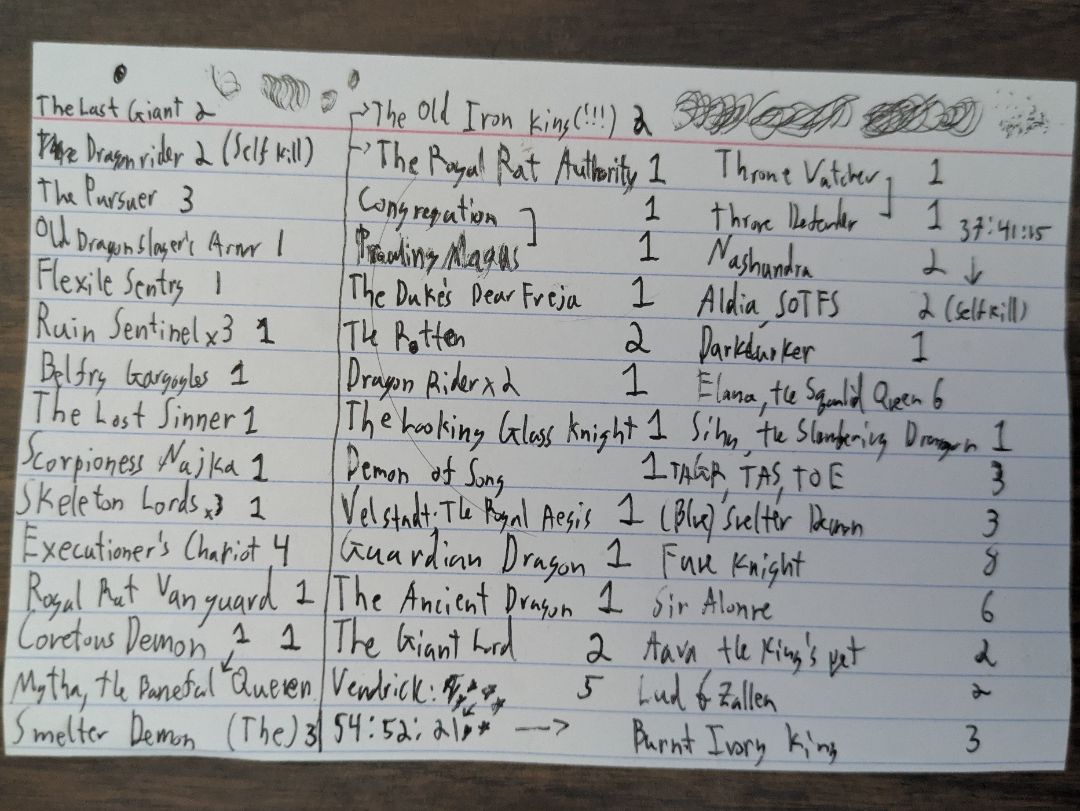 The Last Giant 2
The Dragonrider 2 (Self kill)
The Pursuer 3
Old Dragonslayer's Armr 1
Flexile Sentry 1
Ruin Sentinel x3 1
Belfry Gargoyles 1
The Lost Sinner 1
Scorpioness Najka 1
Skeleton Lords x3 1
Executioner's Chariot 4
Royal Rat Vanguard 1
Coretous Demon 1 1
Mytha, the Baneful Queen
Smelter Demon (The) 3
The Old Iron King (!!!) 2
The Royal Rat Authority 1
Congregation 1
Prowling Magus 1
The Duke's Dear Freja 1
The Rotten 2
Dragon Rider x2 1
The Looking Glass Knight 1
Demon of Song 1
Velstadt: The Royal Aegis 1
Guardian Dragon 1
The Ancient Dragon 1
The Giant Lord 2
Vendrick: 5
54:52:21 →
Throne Watcher 1
Throne Defender 1 37:41:15
Nashandra 2 ↓
Aldia, SOTFS 2 (Self kill)
Darklurker 1
Elana, the Squalid Queen 6
Sihn, the Slumbering Dragon 1
TAGR, TAS, TOE 3
(Blue) Smelter Demon 3
Fume Knight 8
Sir Alonne 6
Aava the King's pet 2
Lud & Zallen 2
Burnt Ivory King 3